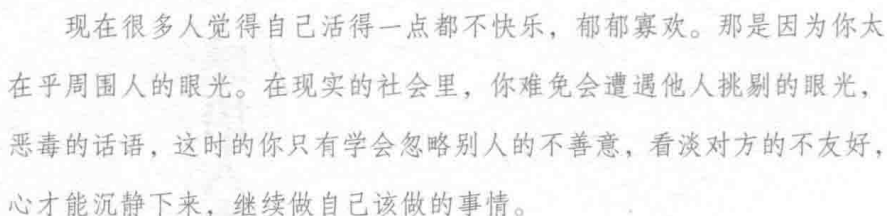 现在很多人觉得自己活得一点都不快乐，郁郁寡欢。那是因为你太
在乎周围人的眼光。在现实的社会里，你难免会遭遇他人挑剔的眼光，
恶毒的话语，这时的你只有学会忽略别人的不善意，看淡对方的不友好，
心才能沉静下来，继续做自己该做的事情。